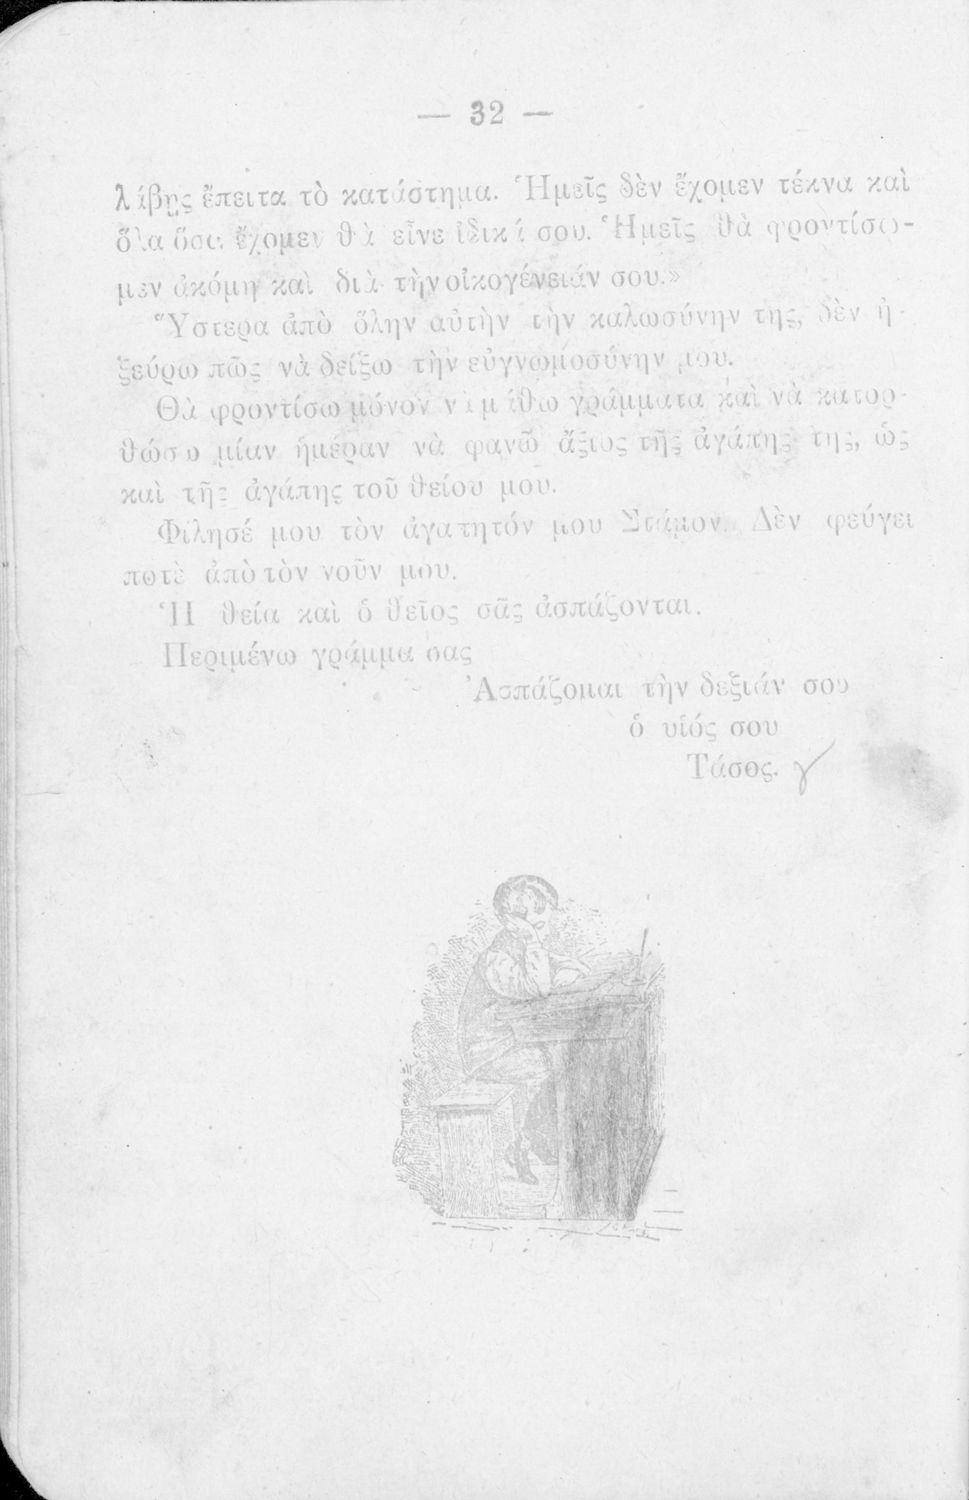 — 32 —
λάβῃς ἔπειτα τὸ κατάστημα. Ἡμεῖς δὲν ἔχομεν τέκνα καὶ
ὅλα ὅσα ἔχομεν θὰ εἶνε ἰδικά σου. Ἡμεῖς θὰ φροντίσω-
μεν ἀκόμη καὶ διὰ τὴν οἰκογένειάν σου.»
Ὕστερα ἀπὸ ὅλην αὐτὴν τὴν καλωσύνην της, δὲν ἠ-
ξεύρω πῶς νὰ δείξω τὴν εὐγνωμοσύνην μου.
Θὰ φροντίσω μόνον νὰ μάθω γράμματα καὶ νὰ κατορ-
θώσω μίαν ἡμέραν νὰ φανῶ ἄξιος τῆς ἀγάπης της, ὡς
καὶ τῆς ἀγάπης τοῦ θείου μου.
Φίλησέ μου τὸν ἀγαπητόν μου Στάμον. Δὲν φεύγει
ποτὲ ἀπὸ τὸν νοῦν μου.
Ἡ θεία καὶ ὁ θεῖος σᾶς ἀσπάζονται.
Περιμένω γράμμα σας
Ἀσπάζομαι τὴν δεξιάν σου
ὁ υἱός σου
Τάσος.